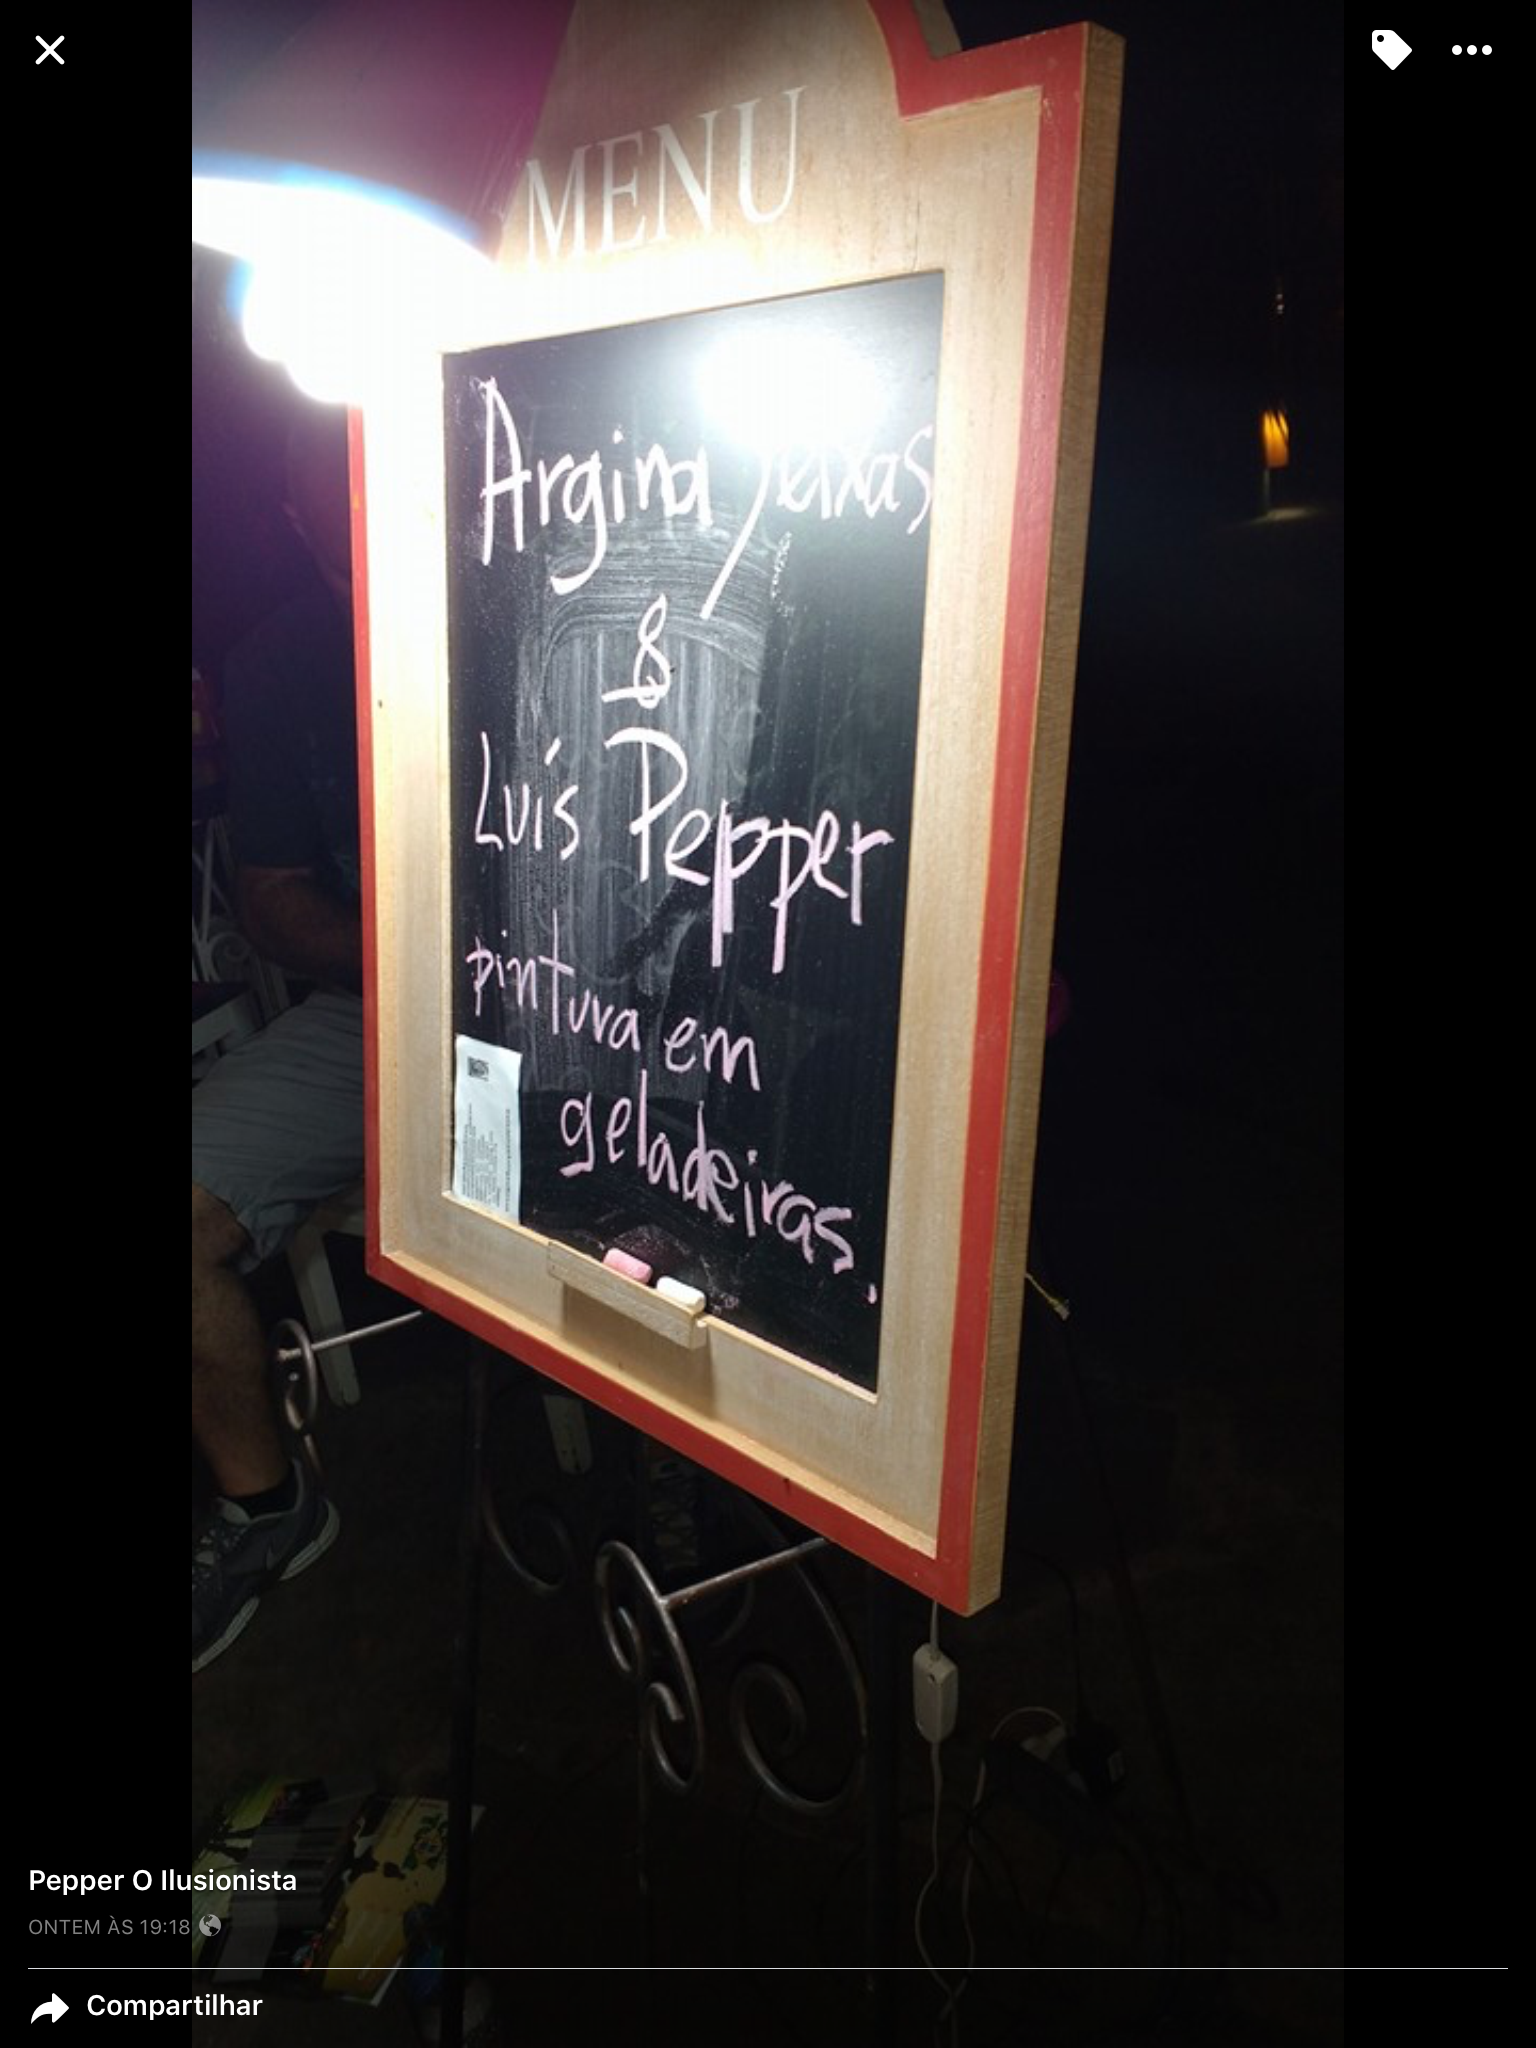 MENU
Argina
&
Luís Pepper
pintura em
geladeiras.
Pepper O Ilusionista
ONTEM ÀS 19:18
Compartilhar